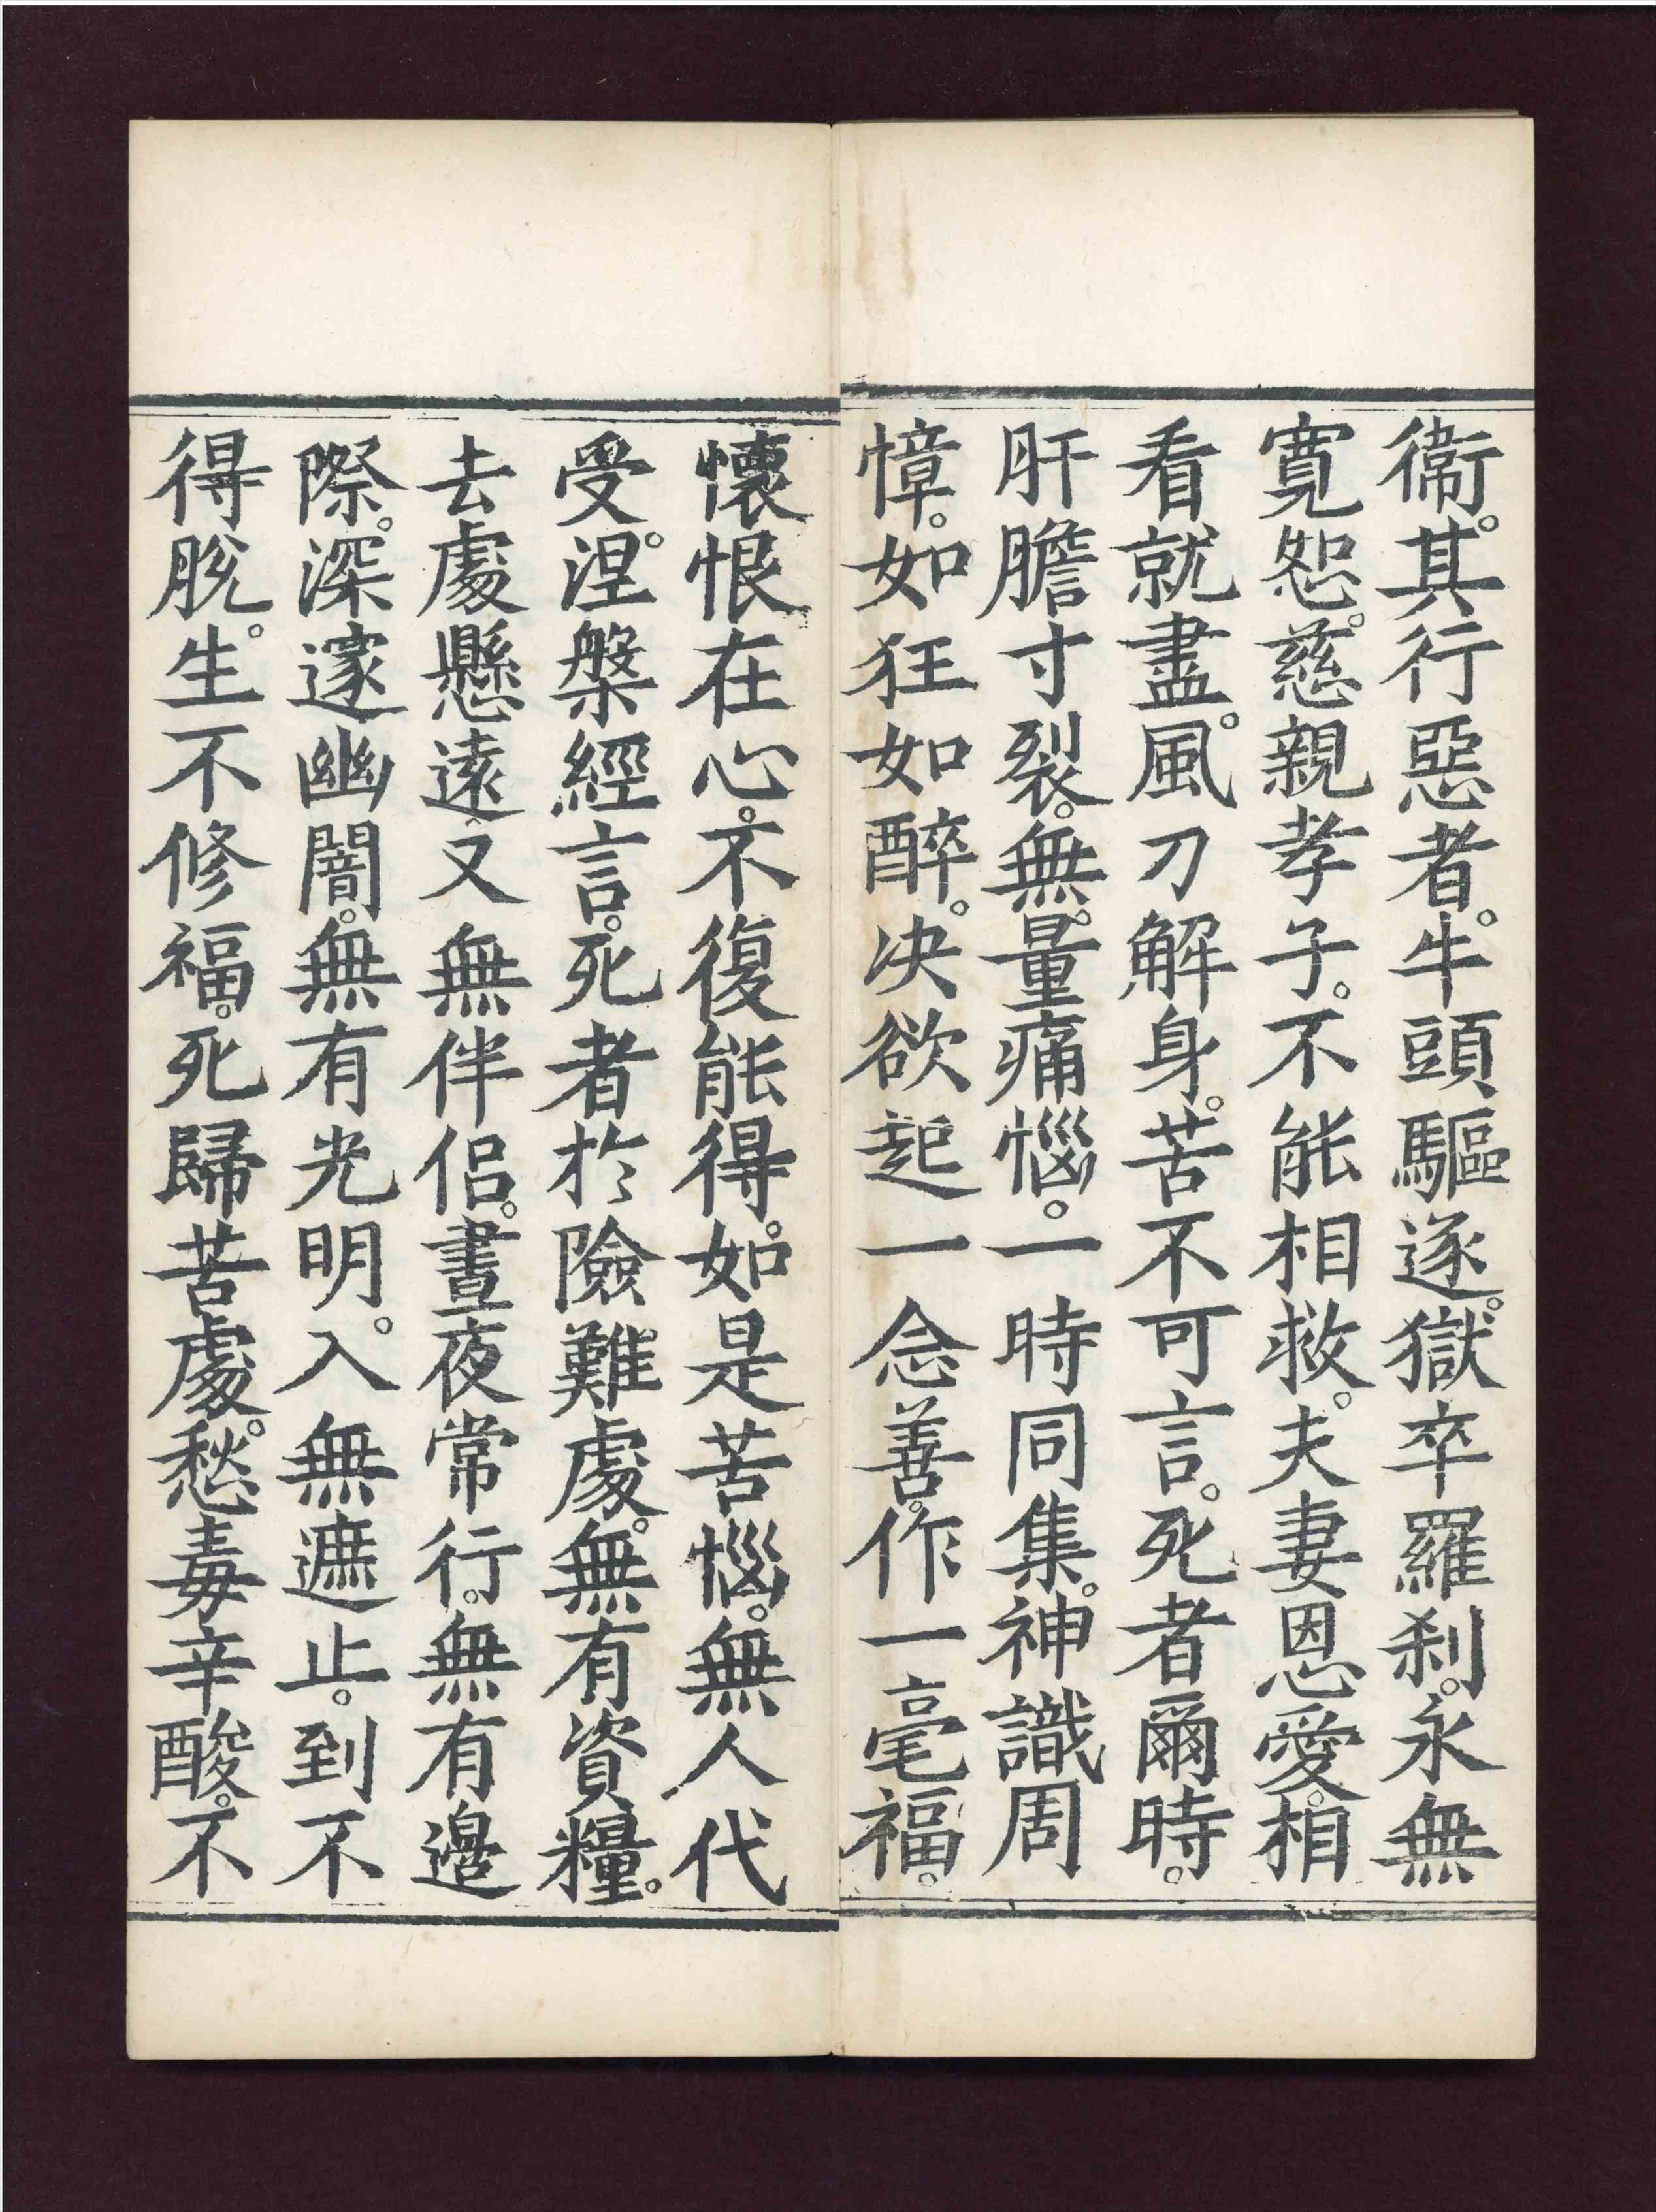 衞。其行惡者。牛頭驅逐。獄卒羅刹。永無
寬恕。慈親孝子。不能相救。夫妻恩愛。相
看就盡。風刀解身。苦不可言。死者爾時。
肝膽寸裂。無量痛惱。一時同集。神識周
慞。如狂如醉。决欲起一念善。作一毫福。
懷恨在心。不復能得。如是苦惱。無人代
受。涅槃經言。死者於險難處。無有資糧。
去處懸遠。又無伴侶。晝夜常行。無有邊
際。深邃幽闇。無有光明。入無遮止。到不
得脫。生不修福。死歸苦處。愁毒辛酸。不